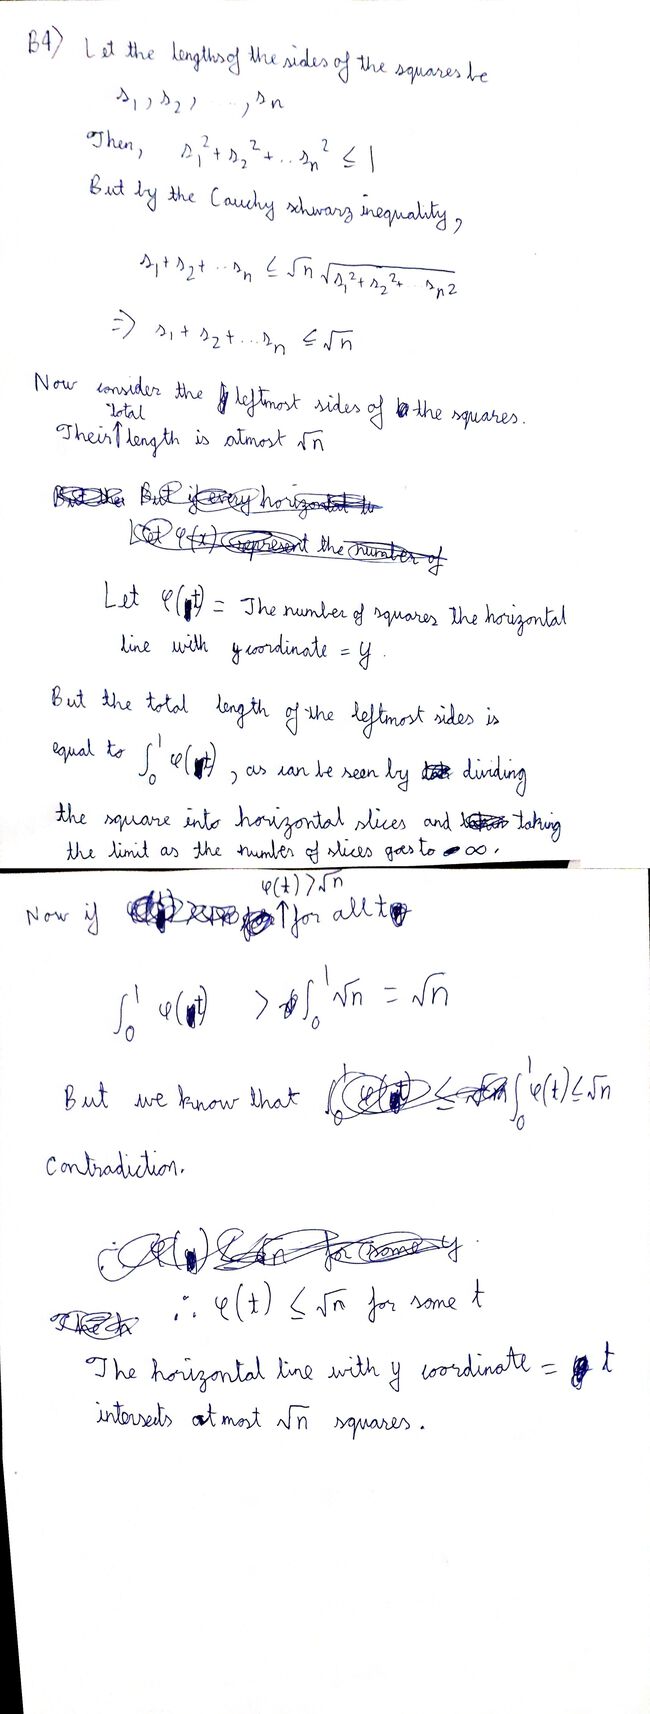 B4) Let the lengths of the sides of the squares be
s₁, s₂, ..., sn
Then, s₁² + s₂² + .. sn² ≤ 1
But by the Cauchy schwarz inequality,
s₁ + s₂ + .. sn ≤ √n √s₁² + s₂² + .. sn2
⇒ s₁ + s₂ + ... sn ≤ √n
Now consider the leftmost sides of the squares.
Their ↑ total length is atmost √n
Let φ(t) = The number of squares the horizontal
line with y coordinate = y.
But the total length of the leftmost sides is
equal to ∫₀¹ φ(t), as can be seen by dividing
the square into horizontal slices and taking
the limit as the number of slices goes to ∞.
Now if ↑ φ(t) > √n for all t
∫₀¹ φ(t) > ∫₀¹ √n = √n
But we know that ∫₀¹ φ(t) ≤ √n
Contradiction.
∴ φ(t) ≤ √n for some t
The horizontal line with y coordinate = t
intersects at most √n squares.